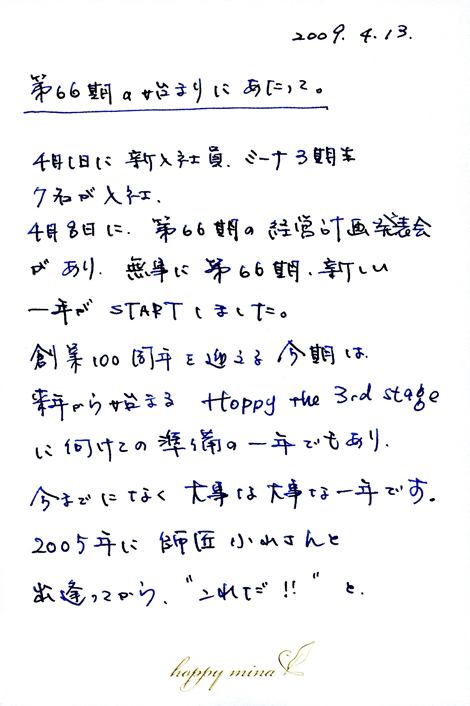 2009. 4. 13.
第66期の始まりにあたって。
4月1日に新入社員、ミーナ3期生
7名が入社、
4月8日に、第66期の経営計画発表会
があり、無事に第66期、新しい
一年がSTARTしました。
創業100周年を迎える今期は、
来年から始まる Hoppy the 3rd stage
に向けての準備の一年でもあり、
今までになく大事な大事な一年です。
2005年に師匠小山さんと
出逢ってから、"これだ!!"と、
happy mina